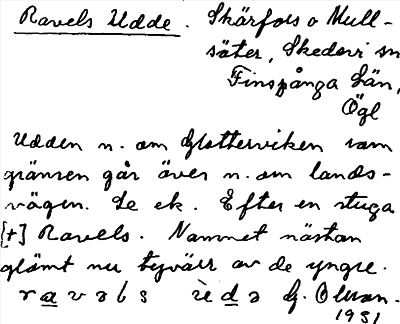 Ravels Udde. Skärfors o Mull-
säter, Skedevi sn
Finspånga Län,
Ögl
Udden n. om Glotterviken som
gränsen går över n. om lands-
vägen. Se ek. Efter en stuga
[+] Ravels. Namnet nästan
glömt nu tyvärr av de yngre.
G. Olsson.
1931